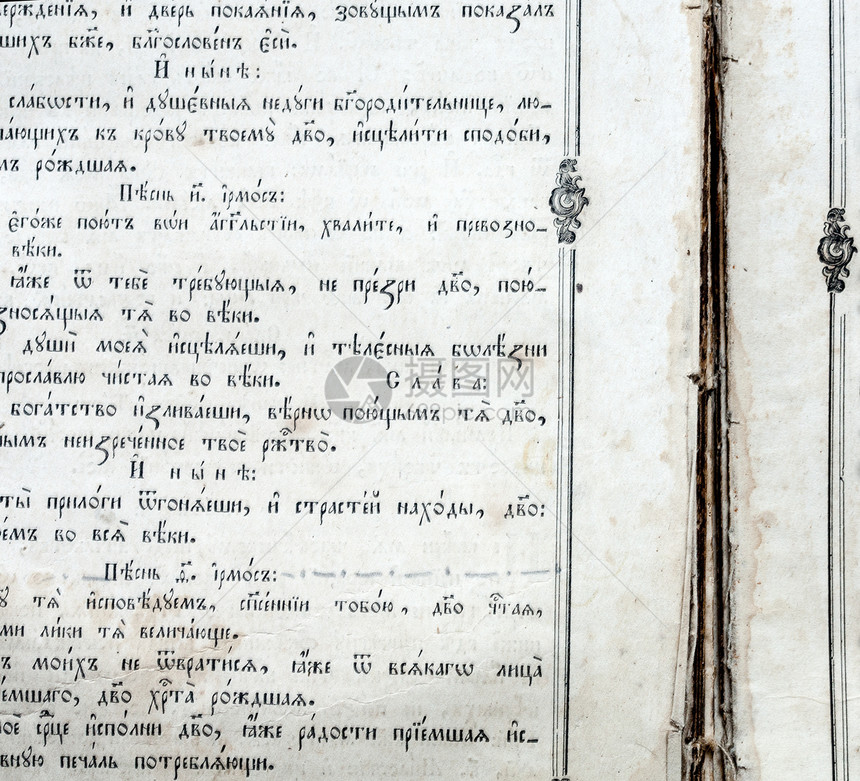 вержденїѧ, и҆ дверь покаѧ́нїѧ, зовꙋщымъ показалъ
шихъ бж҃е, блг҃ословенъ є҆сѝ.
И҆ ны́нѣ:
сла́бѡсти, и҆ дꙋшє́вныѧ недꙋги бг҃ороди́тельнице, лю-
а́ющихъ къ кро́вꙋ твоемꙋ̀ дв҃о, и҆сцѣли́ти сподо́би,
мъ ро́ждшаѧ.
Пѣ́снь и҃. і҆рмо́съ:
є҆го́же пою́тъ во́и а҆́гг҃льстїи, хвали́те, и҆ превозно-
вѣ́ки.
ꙗ҆̀же ѿ тебѐ тре́бꙋющыѧ, не пре́зри дв҃о, пою-
зносѧ́щыѧ тѧ̀ во вѣ́ки.
дꙋшѝ моеѧ̀ и҆сцѣлѧ́еши, и҆ тѣлє́сныѧ болѣ̑зни
прославлю чи́стаѧ во вѣ́ки. Сла́ва:
бога́тство и҆злива́еши, вѣ́рнѡ пою́щымъ тѧ̀ дв҃о,
ымъ неизрече́нное твоѐ рж҃тво̀.
И҆ ны́нѣ:
ты̀ прило́ги ѿгонѧ́еши, и҆ страсте́й нахо́ды, дв҃о:
е́мъ во всѧ̀ вѣ́ки.
Пѣ́снь ѳ҃. і҆рмо́съ:
ꙋ тѧ̀ и҆сповѣ́дꙋемъ, сп҃се́ннїи тобо́ю, дв҃о чт҃аѧ,
ми ли́ки тѧ̀ велича́юще.
ъ мои́хъ не ѿврати́сѧ, ꙗ҆́же ѿ всѧ́кагѡ лица̀
е́мшаго, дв҃о хрⷭ҇та̀ ро́ждшаѧ.
моѐ срⷣце и҆спо́лни дв҃о, ꙗ҆́же ра́дости прїе́мшаѧ и҆с-
о́внꙋю печа́ль потреблѧ́ющи.
摄图网